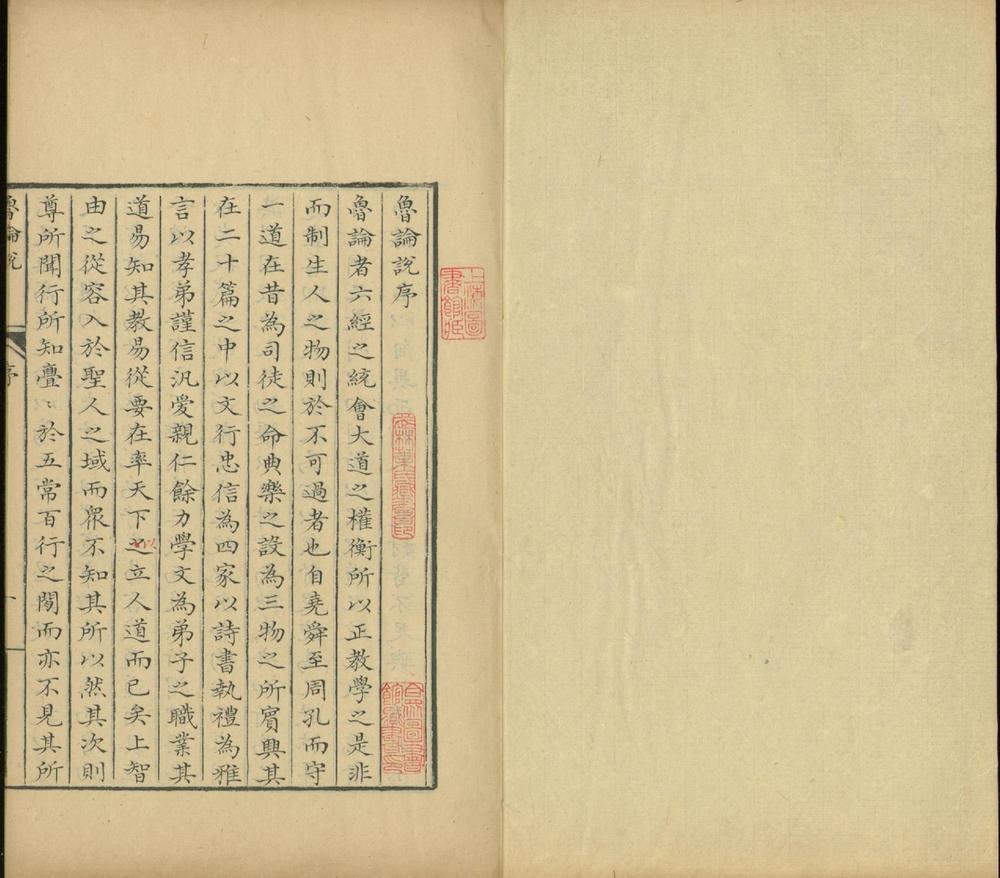 魯論說序
魯論者六經之統會大道之權衡所以正教學之是非
而制生人之物則於不可過者也自堯舜至周孔而守
一道在昔為司徒之命典樂之設為三物之所賓興其
在二十篇之中以文行忠信為四家以詩書執禮為雅
言以孝弟謹信汎愛親仁餘力學文為弟子之職業其
道易知其教易從要在率天下之以立人道而已矣上智
由之從容入於聖人之域而眾不知其所以然其次則
尊所聞行所知亹〻於五常百行之間而亦不見其所
魯論說
序
一
上海圖書館藏
合眾圖書館藏書印